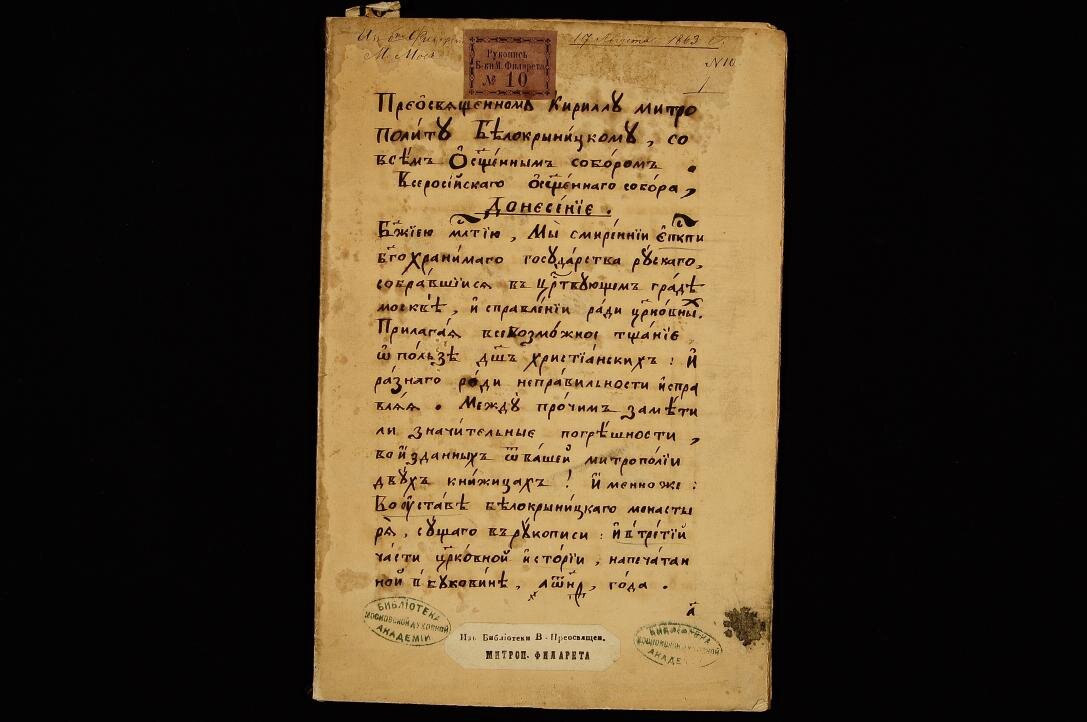 17 Августа 1863 г.
№ 10
Рукопись
Б-ки М. Филарета
№ 10
1
Преѡсвященномꙋ Кириллꙋ митро
полі́тꙋ Бѣлокрыни́цкомꙋ, со
всѣ́мъ Ѻсщ҃е́ннымъ собо́ромъ.
Всеросі́йскаго ѻсщ҃е́ннаго собо́ра,
Донесе́нїе.
Бж҃їею мл҃тїю, Мы̀ смире́ннїи є҆пк҃пи
бг҃охрани́маго госуда́рства рꙋ́скаго,
собра́вшїися въ цр҃твующемъ гра́дѣ
москвѣ̀, и҆ справле́нїи ра́ди цр҃ко́вныхъ.
Прилага́я всевозмо́жное тща́нїе,
ѡ по́льзѣ дш҃ъ христїа́нскихъ: И҆
ра́знаго ро́ди непра́вильности и҆спра
вля́я. Междꙋ̀ про́чимъ замѣ́ти
ли значи́тельные погрѣ́шности,
во и҆́зданныхъ ѿ ва́шей митропо́лїи
двꙋ́хъ кни́жицахъ! И҆́менно же:
Во ꙋ҆ста́вѣ бѣлокрыни́цкаго монасты
ря̀, сꙋ́щаго въ рꙋ́кописи: и҆ в тре́тїй
ча́сти цр҃ко́вной и҆сто́рїи, напеча́тан
ной в бꙋкови́нѣ, го́да.
а҃
БИБЛІОТЕКА
МОСКОВСКОЙ ДУХОВНОЙ
АКАДЕМІИ
Изъ Библіотеки В.-Преосвящен.
МИТРОП. ФИЛАРЕТА
БИБЛІОТЕКА
МОСКОВСКОЙ ДУХОВНОЙ
АКАДЕМІИ